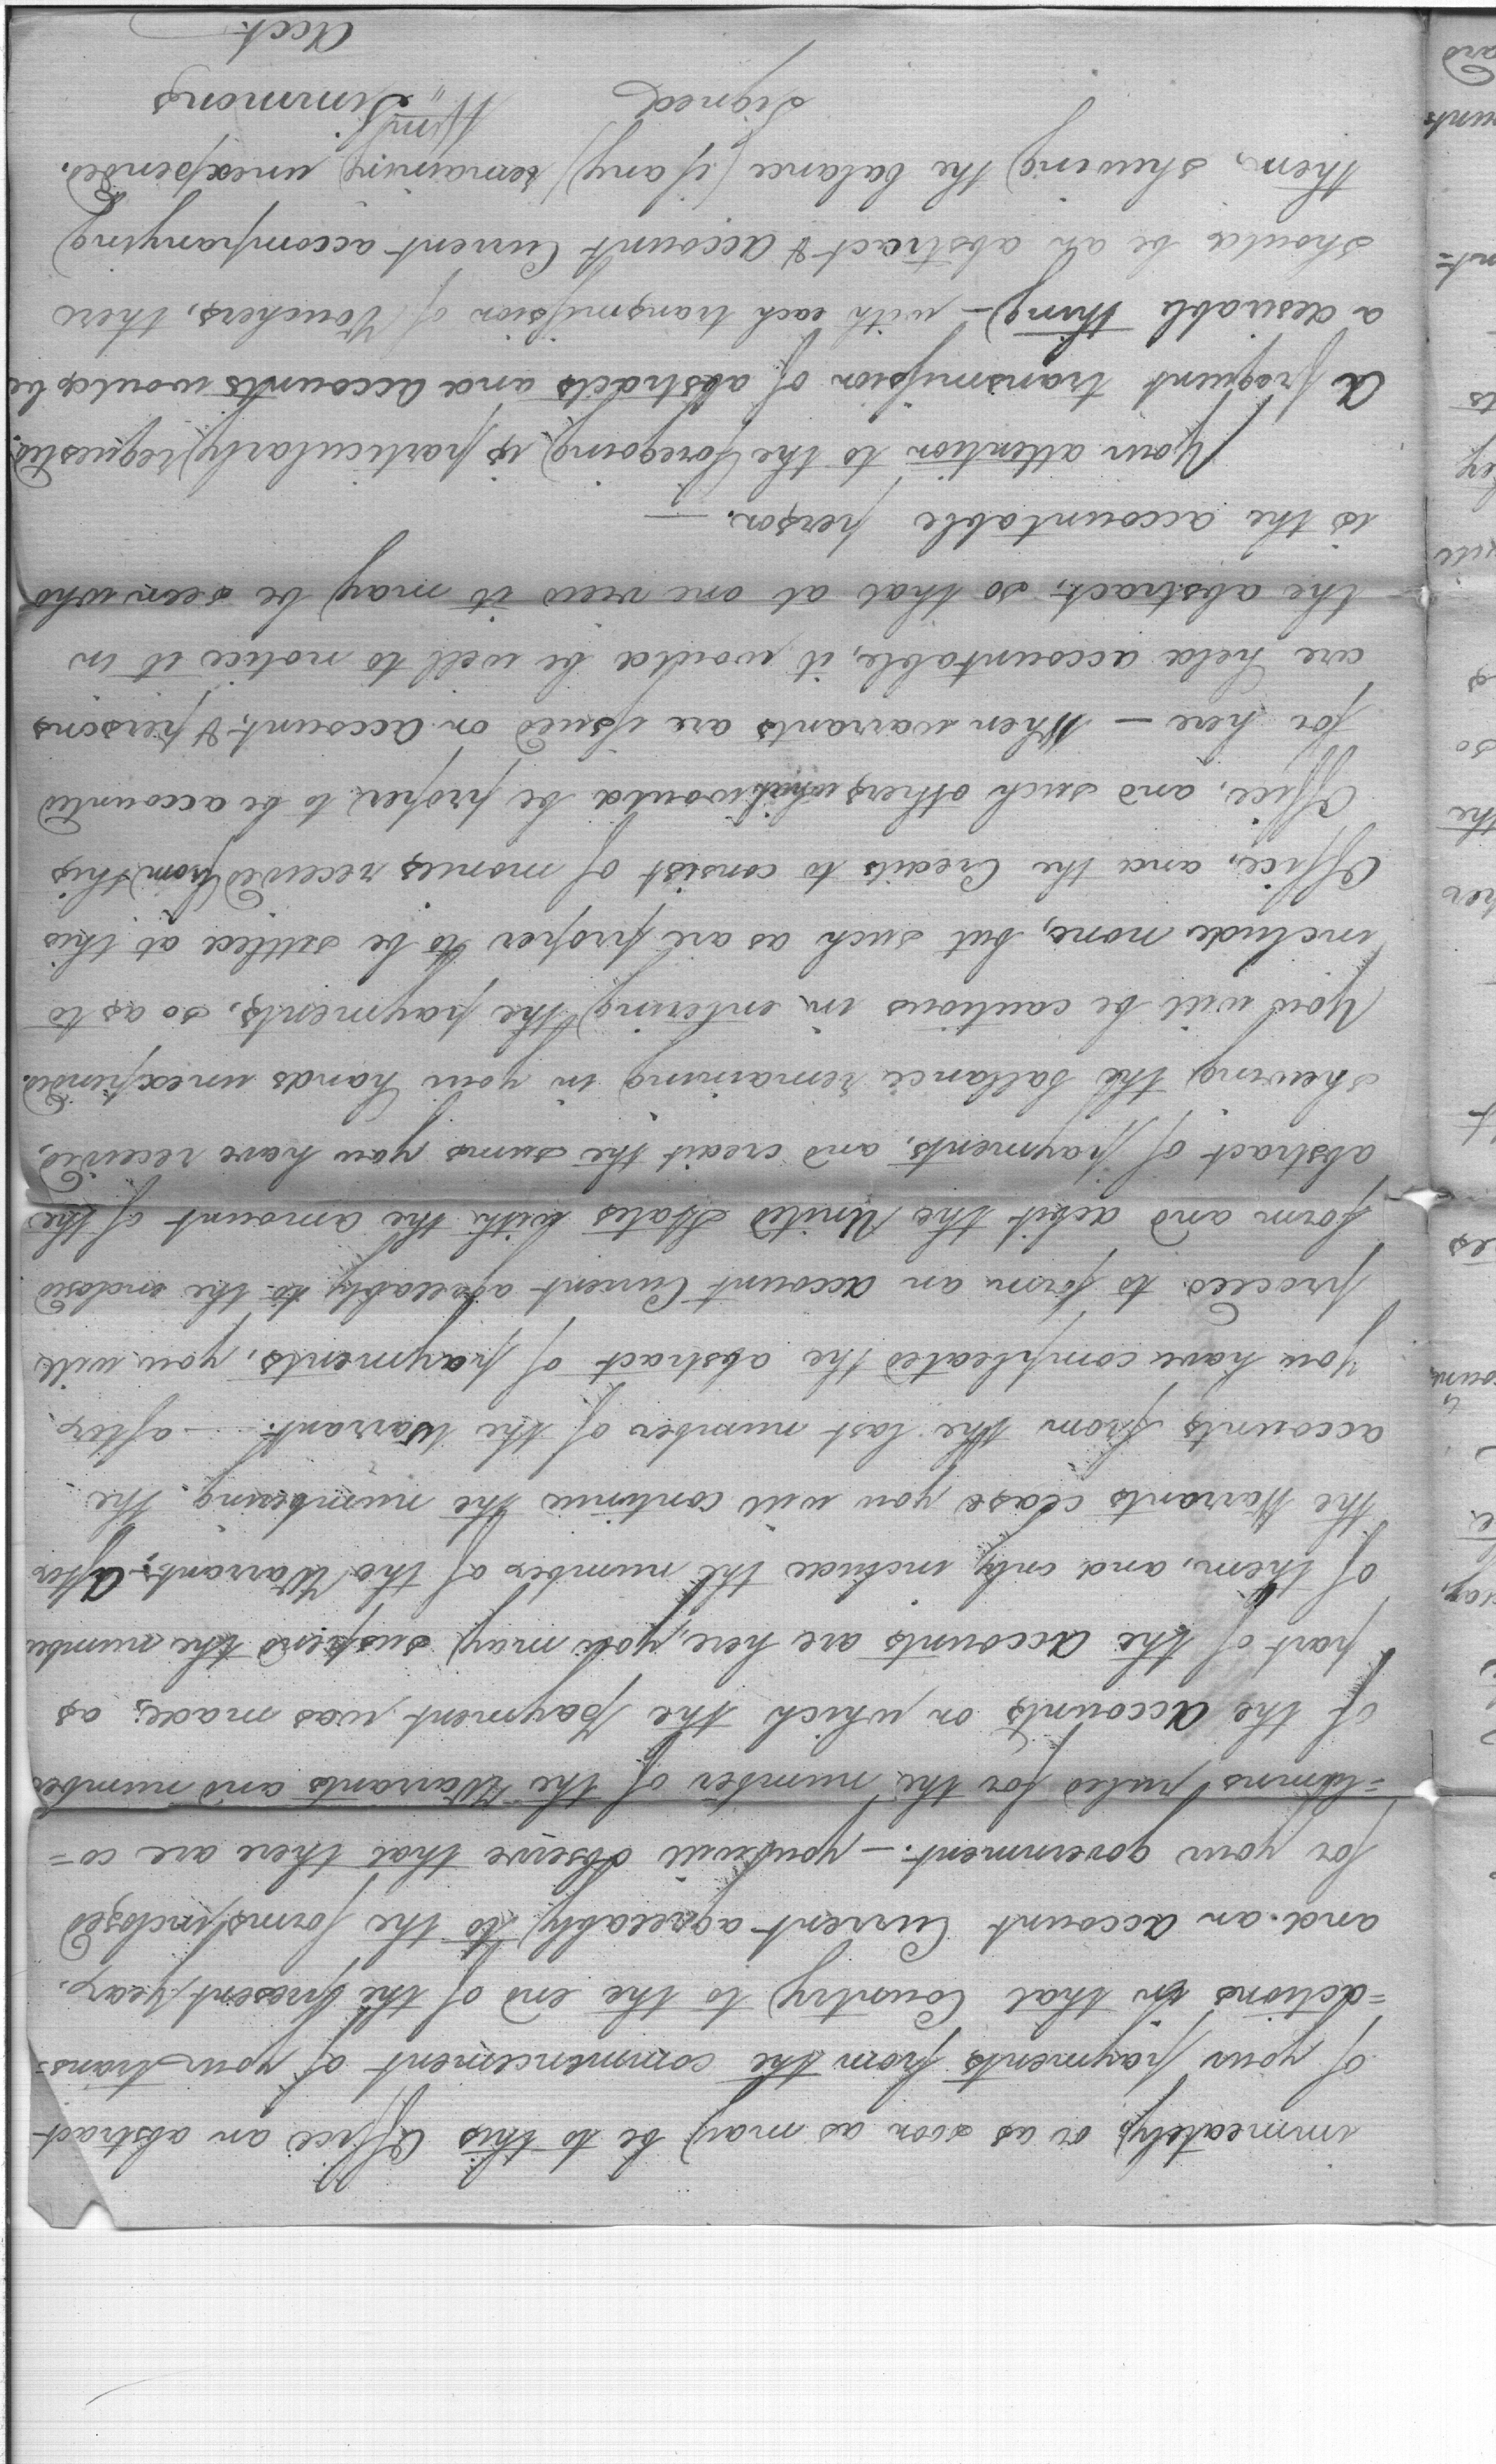 immeately, or as soon as may be to this Office an abstract
of your payments from the commencement of your trans=
=actions in that Country to the end of the present year.
and an account Current agreeably to the forms inclosed
for your government. — you will observe that there are co=
=lumns ruled for the number of the Warrants and number
of the Accounts on which the payment was made; as
part of the Accounts are here, you may suspend the number
of them, and only include the number of the Warrants; After
the Warrants cease you will continue the numbering the
accounts from the last number of the Warrant. — after
you have compleated the abstract of payments, you will
proceed to form an account Current agreeably to the inclosed
form and debit the United States with the amount of the
abstract of payments, and credit the sums you have received,
shewing the ballance remaining in your hands unexpended.
You will be cautious in entering the payments, so as to
include none, but such as are proper to be settled at this
Office, and the Credits to consist of monies received from this
Office, and such others which would be proper to be accounted
for here — When warrants are issued on account, & persons
are held accountable, it would be well to notice it in
the abstract, so that at one view it may be seen who
is the accountable person. —
Your attention to the foregoing is particularly requested.
A frequent transmission of abstracts and accounts would be
a desirable thing — with each transmission of Vouchers, there
should be an abstract & account Current accompanying
them, shewing the balance (if any) remaining unexpended.
Signed Wm Simmons
Acct
es
the
so
ts
nt=
unt
ard